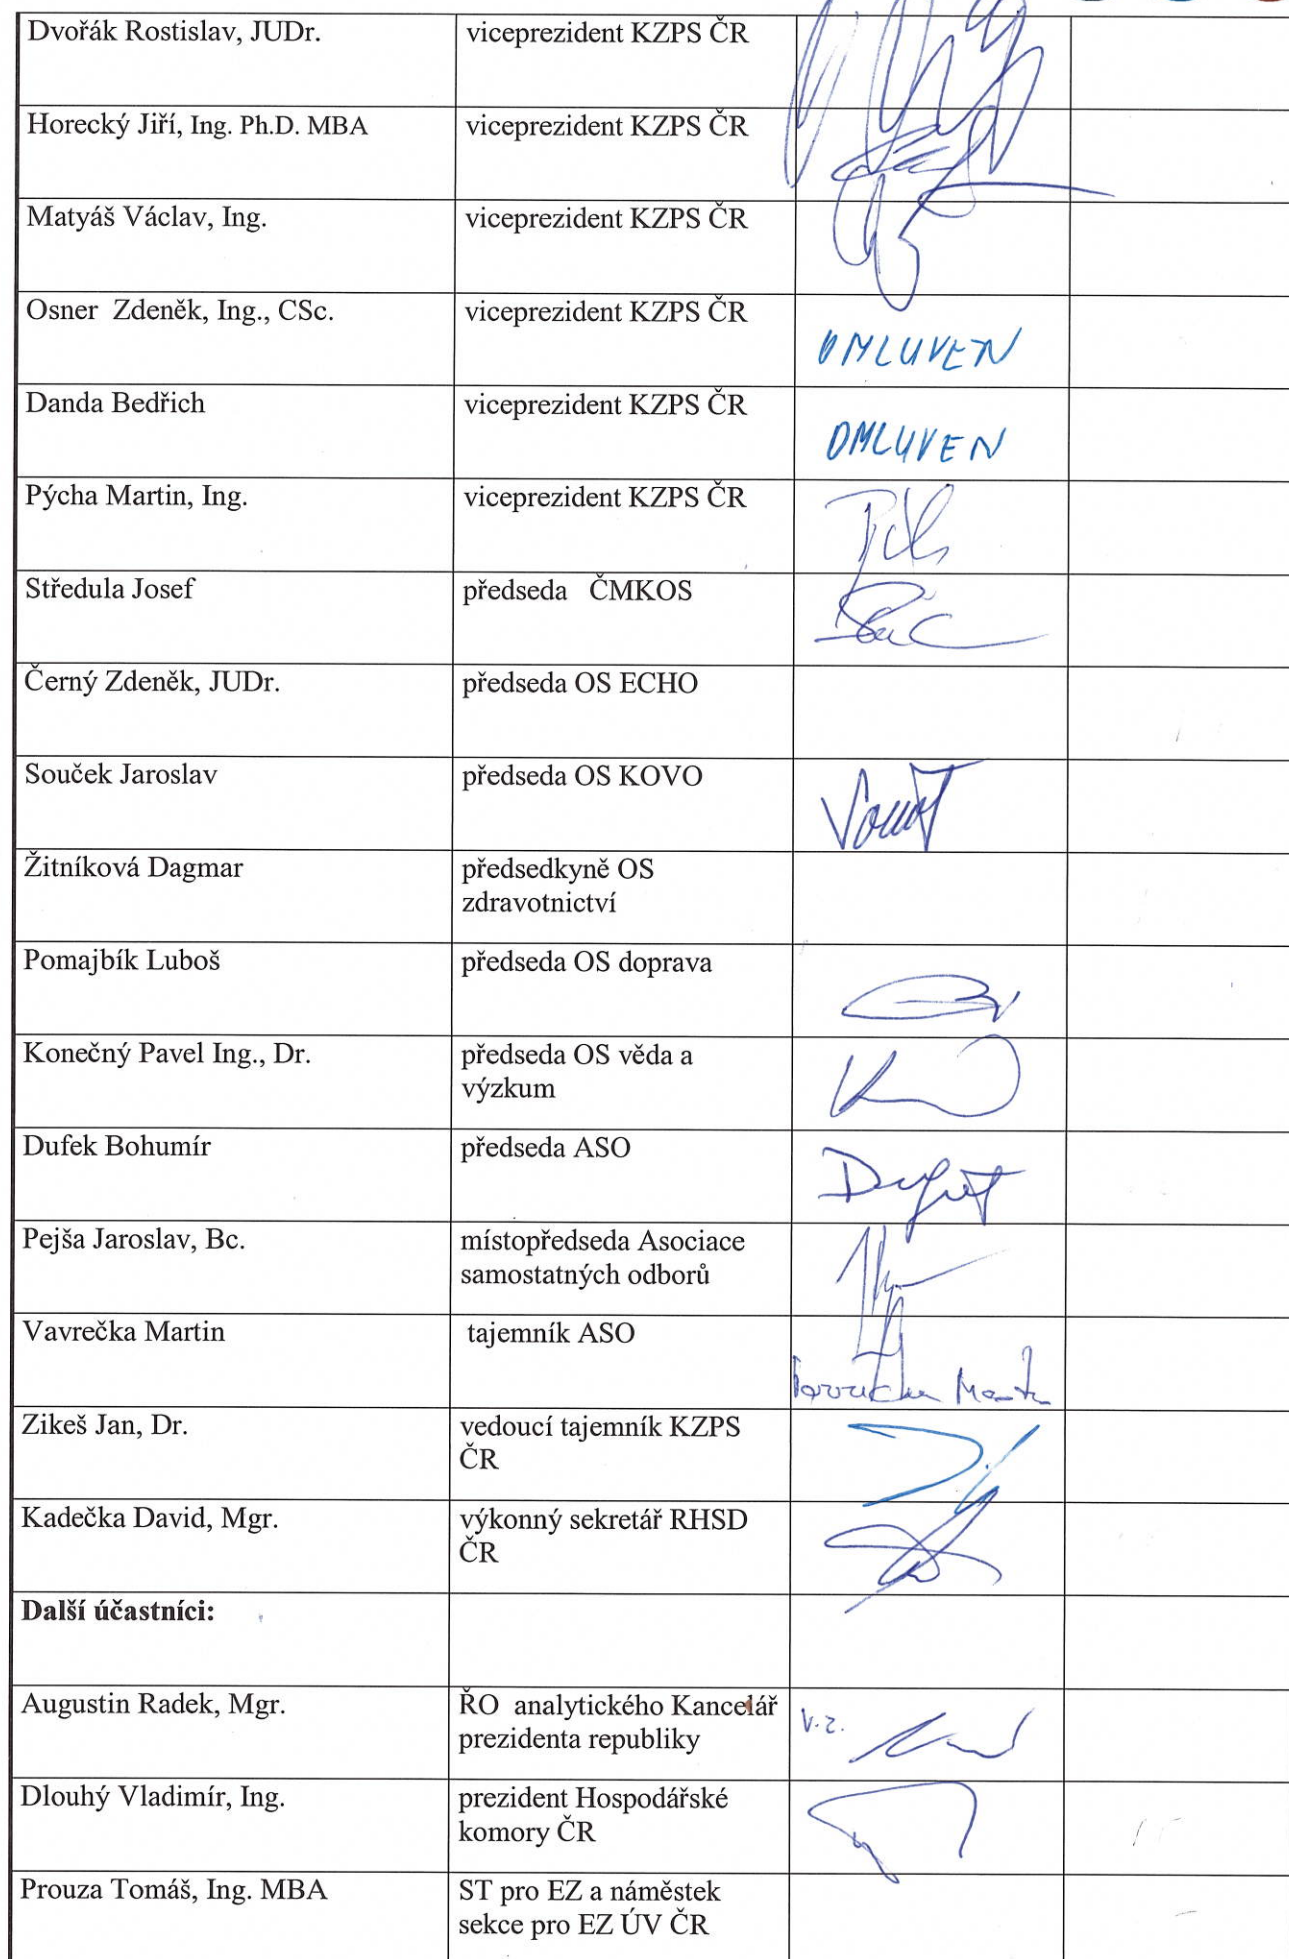 Dvořák Rostislav, JUDr. viceprezident KZPS ČR
Horecký Jiří, Ing. Ph.D. MBA viceprezident KZPS ČR
Matyáš Václav, Ing. viceprezident KZPS ČR
Osner Zdeněk, Ing., CSc. viceprezident KZPS ČR
OMLUVEN
Danda Bedřich viceprezident KZPS ČR
OMLUVEN
Pýcha Martin, Ing. viceprezident KZPS ČR
Středula Josef předseda ČMKOS
Černý Zdeněk, JUDr. předseda OS ECHO
Souček Jaroslav předseda OS KOVO
Žitníková Dagmar předsedkyně OS
zdravotnictví
Pomajbík Luboš předseda OS doprava
Konečný Pavel Ing., Dr. předseda OS věda a
výzkum
Dufek Bohumír předseda ASO
Pejša Jaroslav, Bc. místopředseda Asociace
samostatných odborů
Vavrečka Martin tajemník ASO
Zikeš Jan, Dr. vedoucí tajemník KZPS
ČR
Kadečka David, Mgr. výkonný sekretář RHSD
ČR
Další účastníci:
Augustin Radek, Mgr. ŘO analytického Kancelář
prezidenta republiky
v.z.
Dlouhý Vladimír, Ing. prezident Hospodářské
komory ČR
Prouza Tomáš, Ing. MBA ST pro EZ a náměstek
sekce pro EZ ÚV ČR